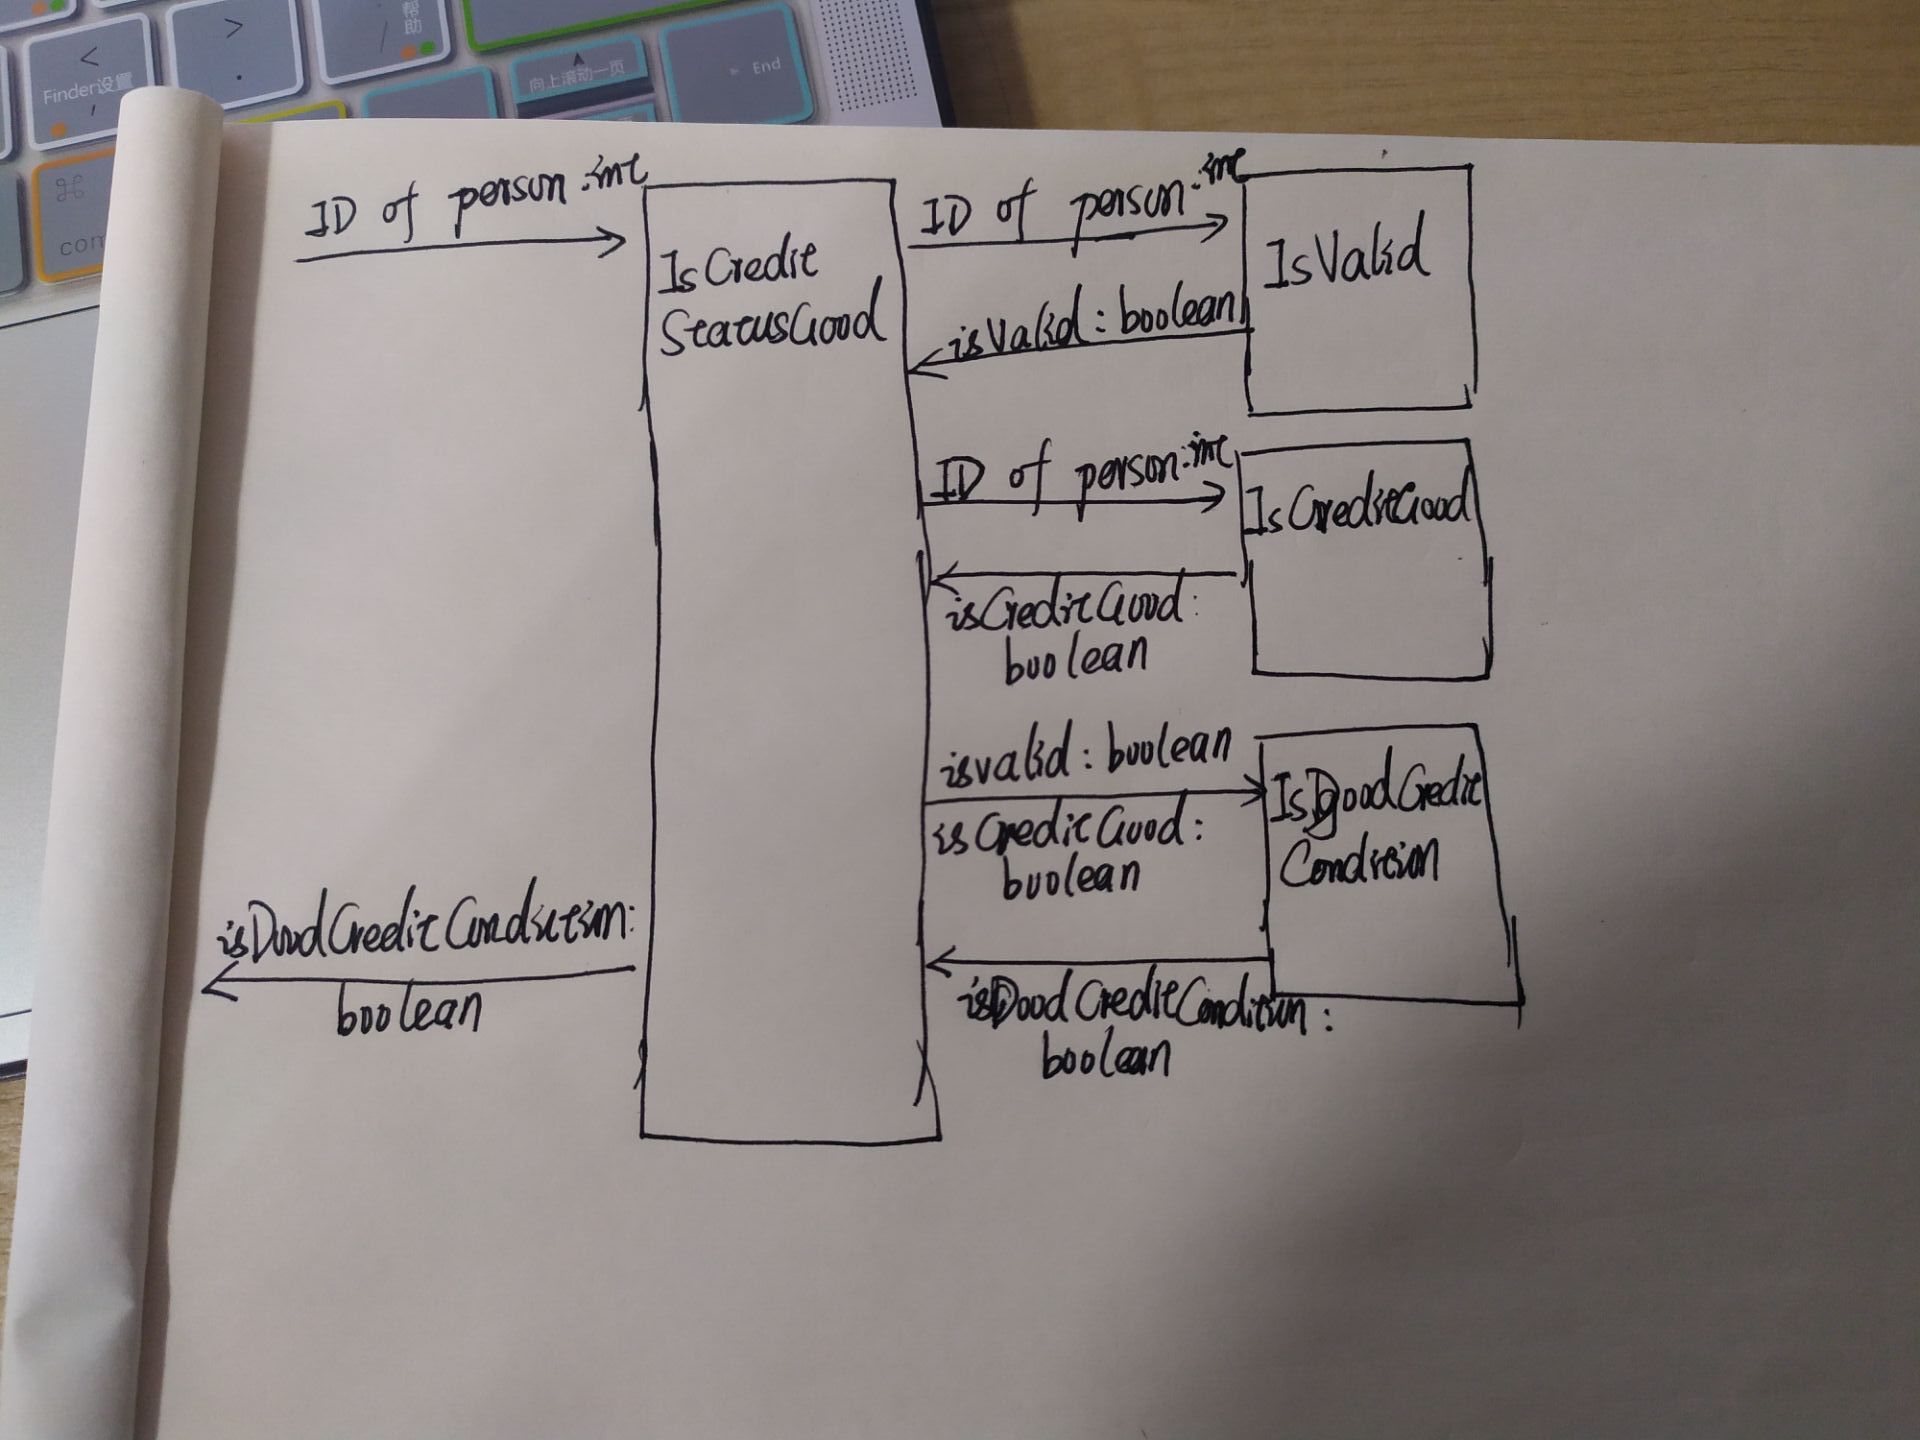 帮助
<
>
/
Finder设置
,
.
向上滚动一页
End
⌘
com
ID of person:int
IsCredit
StatusGood
ID of person:int
IsValid
isValid: boolean
ID of person:int
IsCreditGood
isCreditGood:
boolean
isvalid: boolean
isCreditGood:
boolean
IsDgoodCredit
Condition
isDoodCreditCondiction:
boolean
isDoodCreditCondition:
boolean